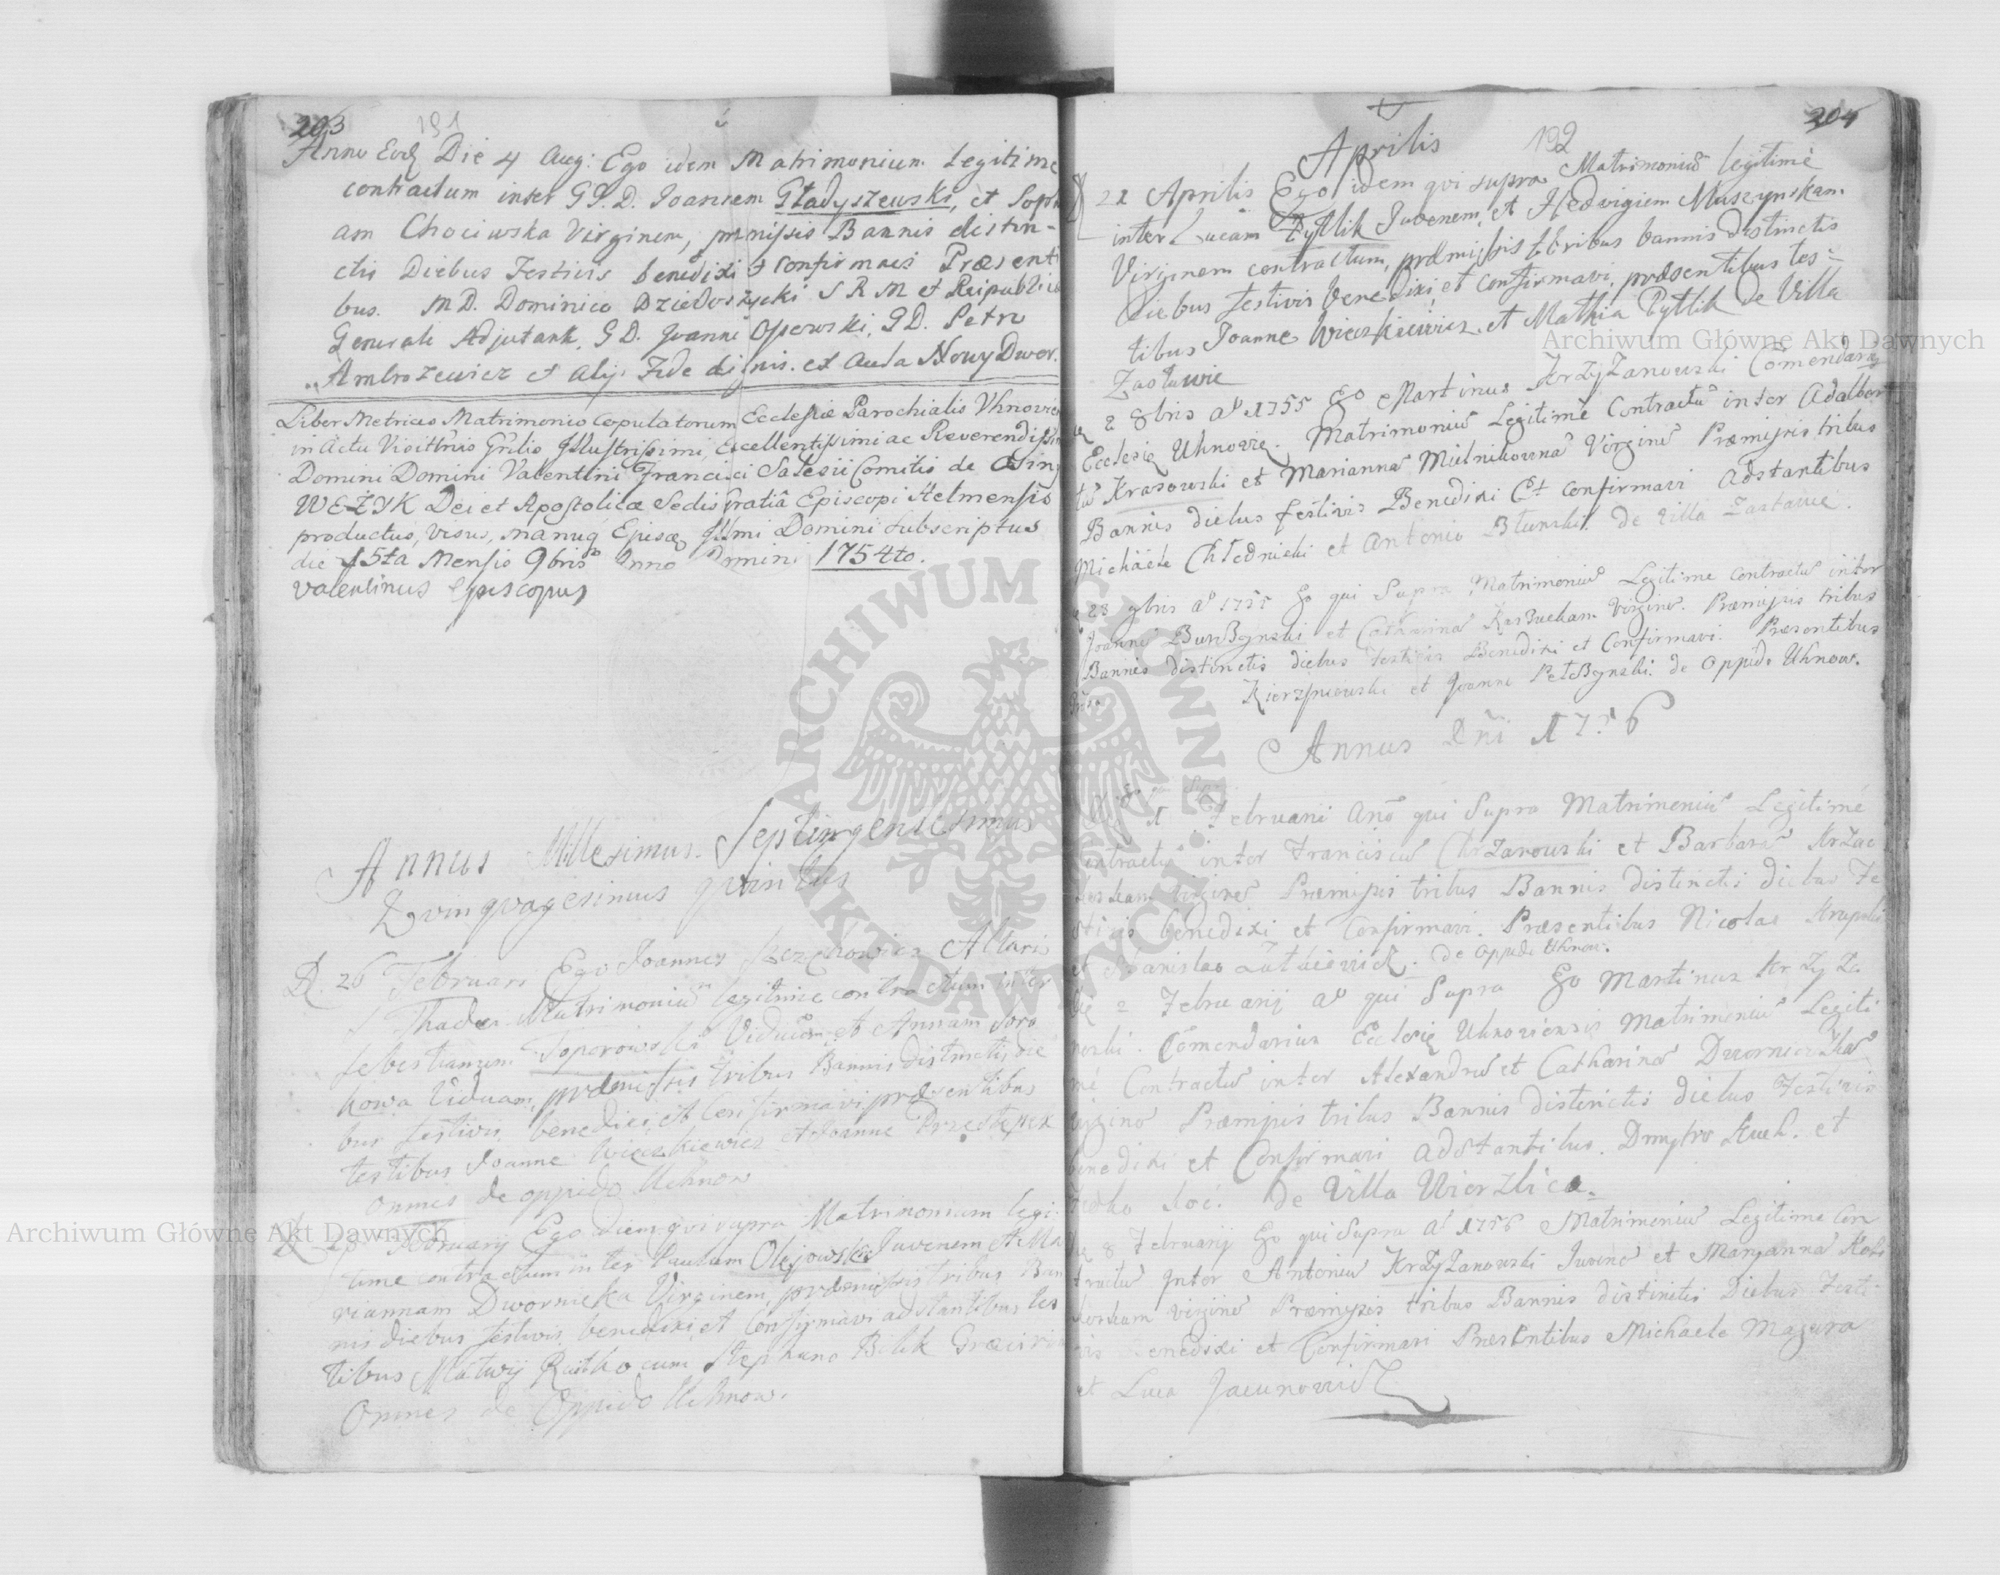 203 191
Anno Eodẽ Die 4 Aug: Ego idem Matrimonium Legitime
contractum inter G. D. Joannem Gładyszewski, et Soph
am Chociwska Virginem, præmissis Bannis distin-
ctis Diebus Festivis benedixi et confirmavi Præsenti
bus. M D. Dominico Dziedoszycki S R M et Reipublicæ
Generali Adjutant, G D. Joanne Operski, G D. Petro
Ambrozewicz et alijs Fide dignis. ex Aula Nowy Dwor.
Liber Metrices Matrimonio Copulatorum Ecclesiæ Parochialis Uhnovien
in Actu Visittñis Gñlis Illustrissimi, Excellentissimi ac Reverendissimi
Domini Domini Valentini Francisci Salesii Comitis de Osiny
WĘŻYK Dei et Apostolicæ Sedis Gratiâ Episcopi Helmensis
productus, visus, manuq Ejusdẽ Illmi Domini subscriptus
die 15ta Mensis 9bris Anno Domini 1754to.
Valentinus Episcopus
Annus Millesimus Septingentesimus
Quinquagesimus quintus
D. 26 Februari Ego Joannes Altaris
S Thadei Matrimoniũ legitime contractum inter
Sebestianum Toporowski Viduum et Annam Soro
kowa Viduam, præmissis tribus Bannis distinctis die
bus festivis, benedixi et Confirmavi præsentibus
testibus Joanne Wieczkiewicz et Joanne
Omnes de oppido Uchnow
D Februarij Ego idem qui supra Matrimonium legi
time contractum inter Paulum Olejowski Juvenem et Ma
riannam Dwornicka Virginem, præmissis tribus Ban
nis diebus festivis, benedixi, et Confirmavi adstantibus tes
tibus Matwij Rutko cum Stephano Bilik
Omnes de Oppido Uchnow.
Aprilis 192 204
D 21 Aprilis Ego idem qui supra Matrimoniũ legitimè
inter Lucam Pytlik Juvenem, et Hedvigiem Muszynskam
Virginem contractum, præmissis tribus bannis distinctis
diebus festivis benedixi et confirmavi, præsentibus tes-
tibus Joanne Wieczkiewicz et Mathia Pytlik de Villa
Zastawie
2 8bris aº 1755 Ego Martinus Krzyzanowski Cõmendariꝰ
Ecclesię Uhnovię. Matrimoniũ Legitimè Contractũ inter Adalber
tũ Krasowski et Mariannã Mielnikownã Virginẽ Præmissis tribus
Bannis diebus festivis Benedixi Et confirmavi Adstantibus
Michaele Chlednicki et Antonio de villa Zastavie.
23 9bris aº 1755 Ego qui Supra Matrimoniũ Legitime contractũ inter
Joannẽ et Catharinã Virginẽ. Præmissis tribus
Bannis distinctis diebus festivis Benedixi et Confirmavi. Præsentibus
et Joanne de Oppido Uhnow.
Annus Dñi 1756
1 Februarii Anõ qui Supra Matrimoniũ Legitimè
Contractũ inter Franciscũ Chrzanowski et Barbarã Krzac
Virginẽ Præmissis tribus Bannis distinctis diebus Fe
stivis benedixi et Confirmavi. Præsentibus Nicolao
et Stanislao de oppido Uhnow.
Die 2 Februarij aº qui Supra Ego Martinus Krzyza
nowski Cõmendarius Ecclesię Uhnoviensis Matrimoniũ Legiti
mè Contractũ inter Alexandrũ et Catharinã Dwornicżkã
Virginẽ Præmissis tribus Bannis distinctis diebus Festivis
benedixi et Confirmavi adstantibus. Dmytro Kuch. et
de Villa Wierzbica.
Die 8 Februarij Ego qui Supra aº 1756 Matrimoniũ Legitime Con
tractũ Inter Antoniũ Krzyzanowski Juvenẽ et Maryannã
Virginẽ Præmissis tribus Bannis distinctis Diebus Festi
vis Benedixi et Confirmavi Præsentibus Michaele Mazura
et Luca Jacunowicz
Archiwum Główne Akt Dawnych
Archiwum Główne Akt Dawnych
ARCHIWUM GŁÓWNE AKT DAWNYCH